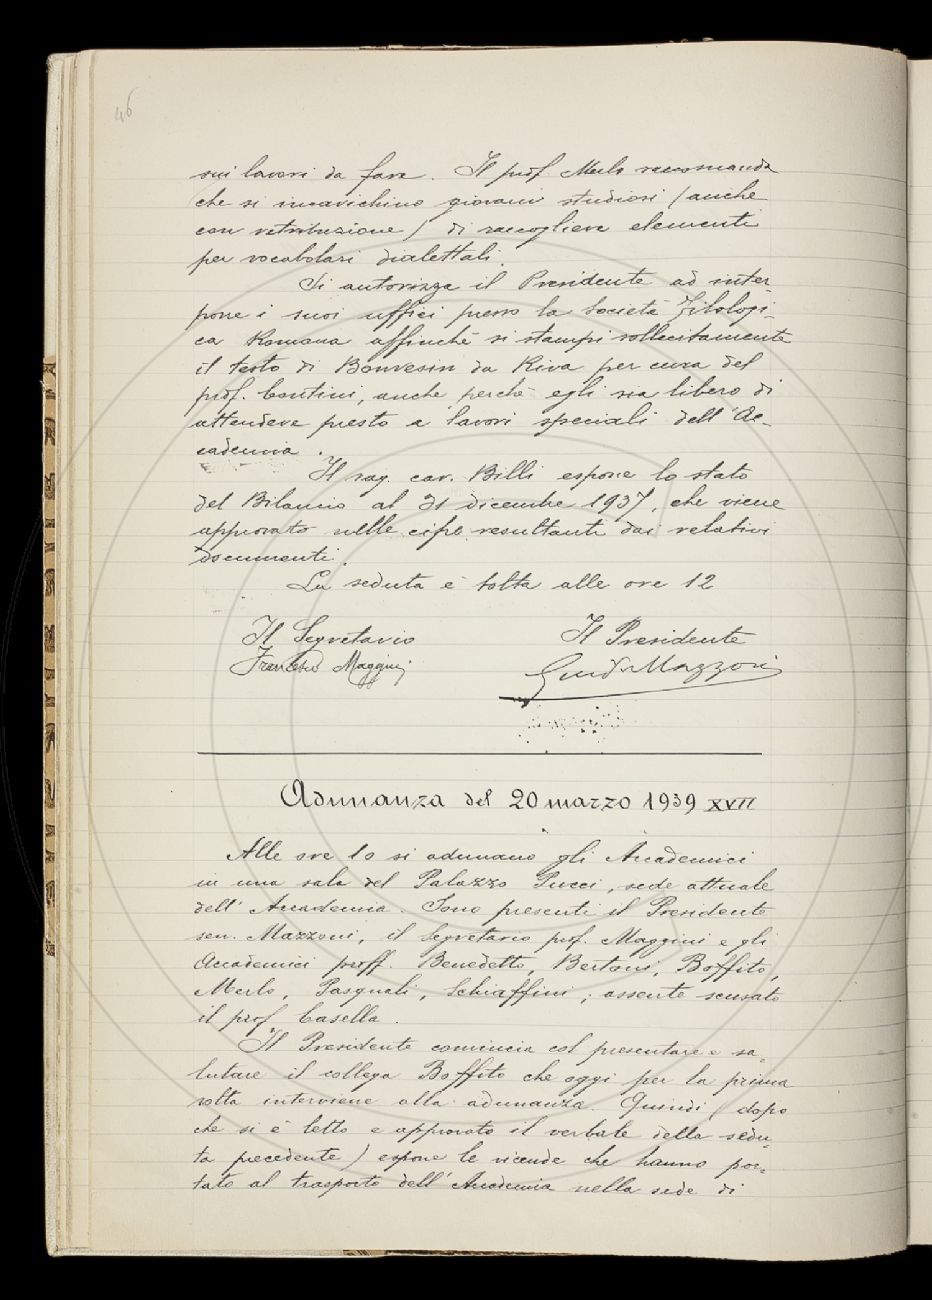 46
sui lavori da fare. Il prof. Merlo raccomanda
che si incarichino giovani studiosi (anche
con retribuzione) di raccogliere elementi
per vocabolari dialettali.
Si autorizza il Presidente ad inter-
porre i suoi uffici presso la Società Filologi-
ca Romana affinché si stampi sollecitamente
il testo di Bonvesin da Riva per cura del
prof. Contini, anche perchè egli sia libero di
attendere presto a lavori speciali dell'Ac-
cademia.
Il rag. cav. Billi espone lo stato
del Bilancio al 31 dicembre 1937, che viene
approvato nelle cifre resultanti dai relativi
documenti.
La seduta è tolta alle ore 12
Il Segretario Il Presidente
Francesco Maggini Guido Mazzoni
Adunanza del 20 marzo 1939 XVII
Alle ore 10 si adunano gli Accademici
in una sala del Palazzo Pucci, sede attuale
dell'Accademia. Sono presenti il Presidente
sen. Mazzoni, il Segretario prof. Maggini e gli
Accademici proff. Benedetto, Bertoni, Boffito,
Merlo, Pasquali, Schiaffini; assente scusato
il prof. Casella.
Il Presidente comincia col presentare e sa-
lutare il collega Boffito che oggi per la prima
volta interviene alla adunanza. Quindi (dopo
che si è letto e approvato il verbale della sedu-
ta precedente) espone le vicende che hanno por-
tato al trasporto dell'Accademia nella sede di